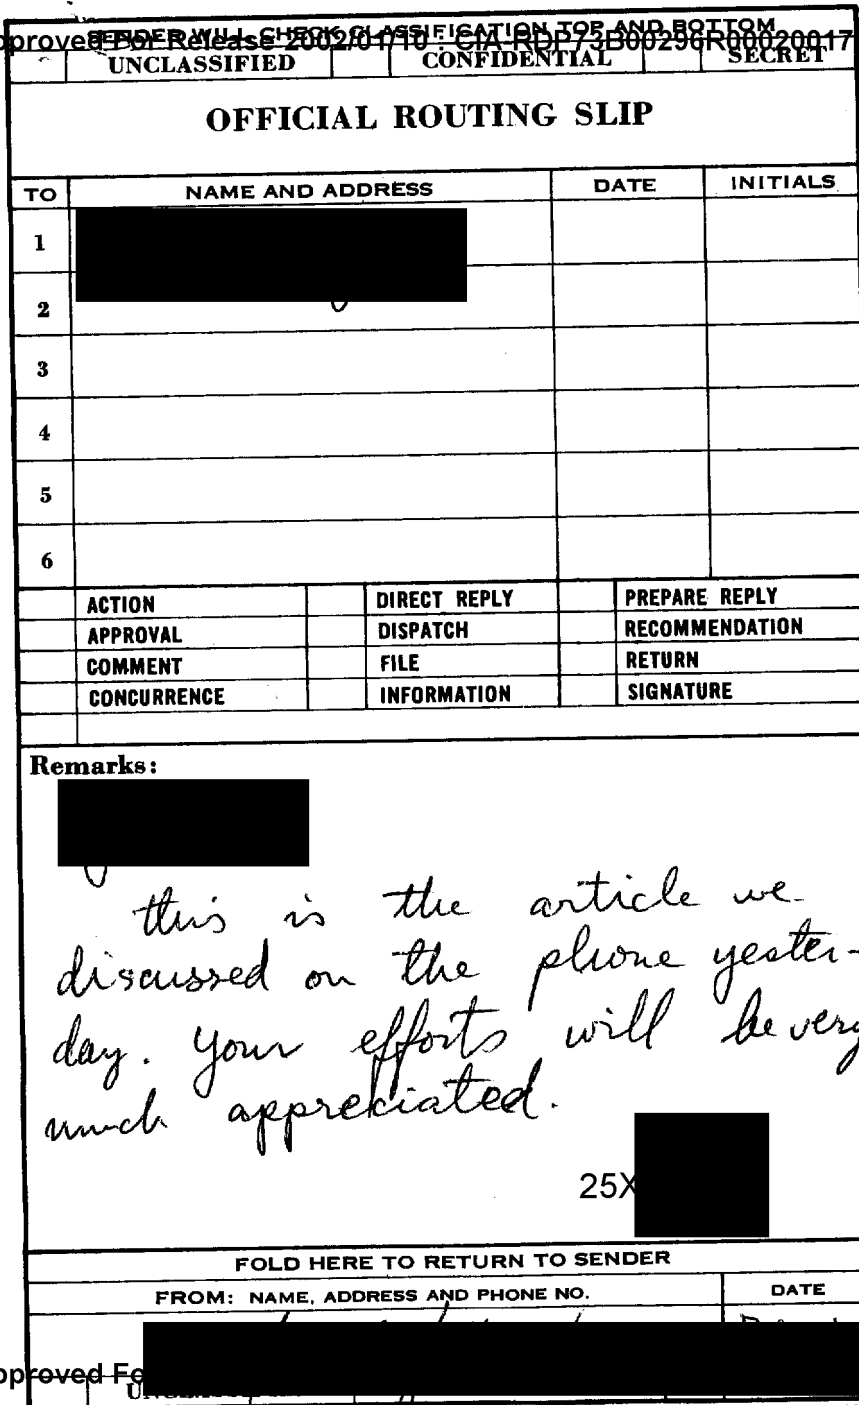 SENDER WILL CHECK CLASSIFICATION TOP AND BOTTOM
pproved For Release 2002/01/10 : CIA-RDP73B00296R00020017
UNCLASSIFIED CONFIDENTIAL SECRET
OFFICIAL ROUTING SLIP
TO NAME AND ADDRESS DATE INITIALS
1
2
3
4
5
6
ACTION DIRECT REPLY PREPARE REPLY
APPROVAL DISPATCH RECOMMENDATION
COMMENT FILE RETURN
CONCURRENCE INFORMATION SIGNATURE
Remarks:
this is the article we
discussed on the phone yester-
day. Your efforts will be very
much appreciated.
25X
FOLD HERE TO RETURN TO SENDER
FROM: NAME, ADDRESS AND PHONE NO. DATE
pproved Fo